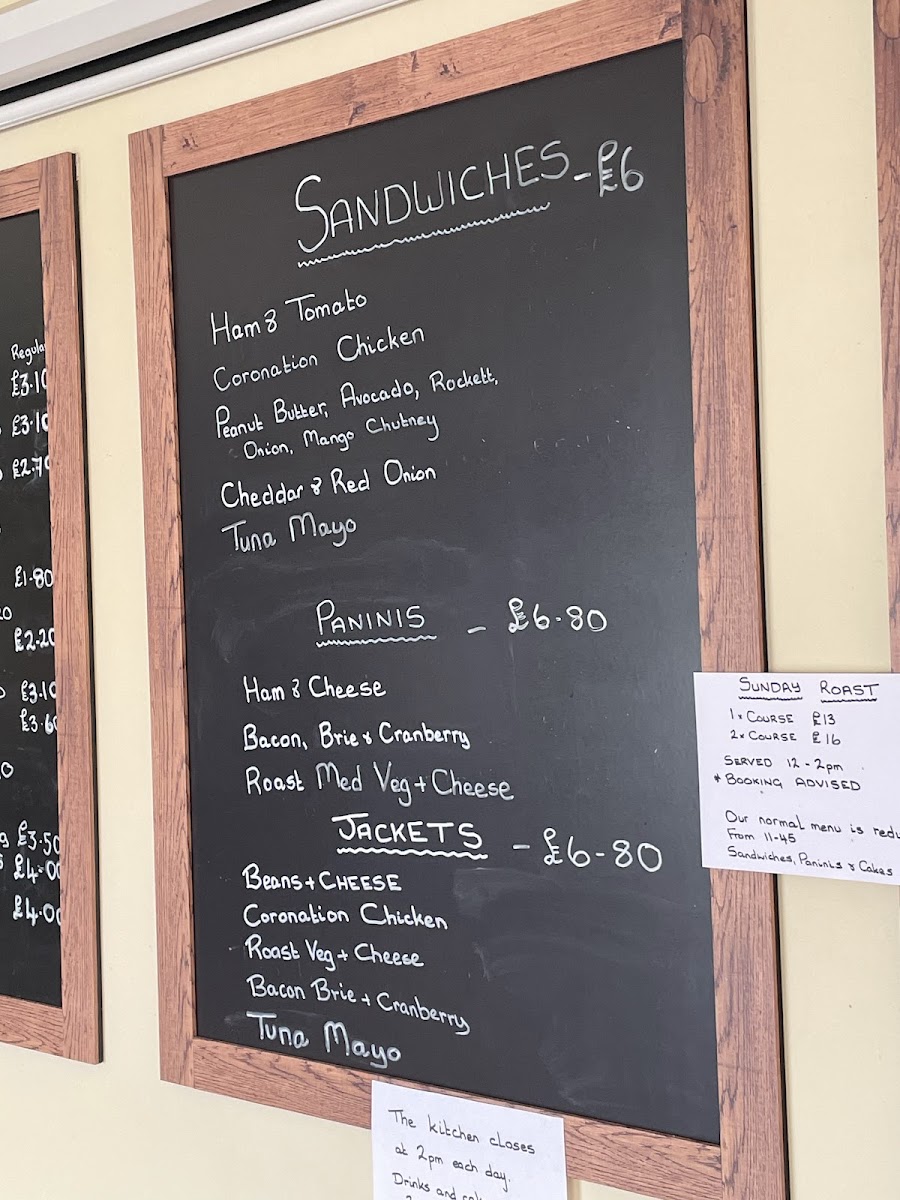 Regular
£3.10
£3.10
£2.70
£1.80
£2.20
£3.10
£3.60
£3.50
£4.00
£4.00
SANDWICHES - £6
Ham & Tomato
Coronation Chicken
Peanut Butter, Avocado, Rockett,
Onion, Mango Chutney
Cheddar & Red Onion
Tuna Mayo
PANINIS - £6.80
Ham & Cheese
Bacon, Brie & Cranberry
Roast Med Veg + Cheese
JACKETS - £6-80
Beans + CHEESE
Coronation Chicken
Roast Veg + Cheese
Bacon Brie + Cranberry
Tuna Mayo
SUNDAY ROAST
1 x COURSE £13
2 x COURSE £16
SERVED 12 - 2pm
* BOOKING ADVISED
Our normal menu is
From 11-45
Sandwiches, Paninis & Cakes
The kitchen closes
at 2pm each day.
Drinks and